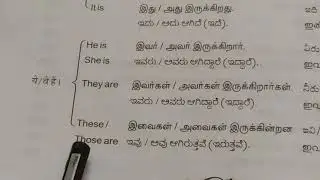 It is
இது / அது இருக்கிறது.
ಇದು / ಅದು ಆಗಿದೆ (ಇದೆ).
He is
She is
இவர் / அவர் இருக்கிறார்.
ಇವರು / ಅವರು ಆಗಿದ್ದಾರೆ (ಇದ್ದಾರೆ).
ये / वे हैं।
They are
இவர்கள் / அவர்கள் இருக்கிறார்கள்.
ಇವರು / ಅವರು ಆಗಿದ್ದಾರೆ (ಇದ್ದಾರೆ)
These /
Those are
இவைகள் / அவைகள் இருக்கின்றன
ಇವು / ಅವು ಆಗಿರುತ್ತವೆ (ಇರುತ್ತವೆ).